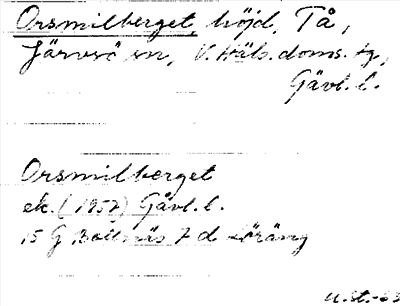 Orsmilberget, höjd, Tå,
Järvsö sn, V. Häls. doms. tg,
Gävl. l.
Orsmilberget
ek. (1957) Gävl. l.
15 G Bollnäs 7 d Löräng
U.St.-63